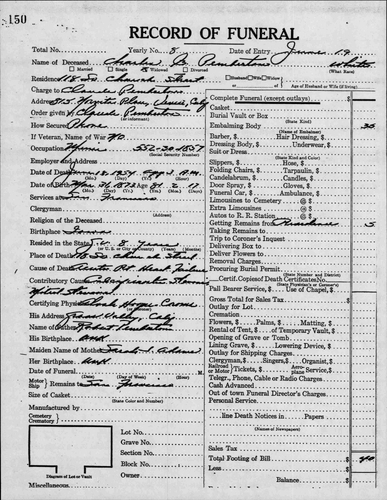 150
RECORD OF FUNERAL
Total No. Yearly No. 8 Date of Entry June 19
Name of Deceased Charles C. Pemberton White
Married Single Widowed Divorced (What Race)
Residence 118 So. Church Street Husband Wife Widow
of Age of Husband or Wife (if living)
Charge to Claude Pemberton
Address Venice, Calif
Order given by Claude Pemberton
(or informant)
How Secured Phone
If Veteran, Name of War No
Occupation
(Social Security Number)
Employer and Address
Date of Death 1954 P.M.
(Mo.) (Day) (Yr.) (Hour)
Date of Birth 1872 81 2 17
(Mo.) (Day) (Yr.) (Yrs.) (Mos.) (Days)
Services at San Francisco
Clergyman
Religion of the Deceased
(Affiliation)
Birthplace Iowa
Resided in the State U. S. years
Place of Death 118 So. Church Street
Cause of Death Heart Failure
Contributory Cause
Mitral Stenosis
Certifying Physician
His Address Grass Valley, Calif
Name of Father Robert Pemberton
His Birthplace Unk
Maiden Name of Mother Sarah Adams
Her Birthplace Unk
Date of Funeral M.
(Date) (Day of Week) (Hour)
Motor
Ship Remains to San Francisco
Size of Casket
(State Color and Number)
Manufactured by
Cemetery
Crematory
Lot No.
Grave No.
Section No.
Block No.
Owner
Diagram of Lot or Vault
Miscellaneous
Complete Funeral (except outlays)
Casket
Burial Vault or Box
(State Kind)
Embalming Body 35
(Name of Embalmer)
Barber, Hair Dresser,
Dressing Body, Underwear,
Suit or Dress
(State Kind and Color)
Slippers, Hose,
Folding Chairs, Tarpaulin,
Candelabrum, Candles,
Door Spray, Gloves,
Funeral Car, Ambulance,
Limousines to Cemetery @
Extra Limousines @
Autos to R. R. Station @
Getting Remains from Residence 5
Taking Remains to
Trip to Coroner's Inquest
Delivering Box to
Deliver Flowers to
Removal Charges
Procuring Burial Permit
(State Number and District)
Certif. Copies of Death Certificates No.
(State Physician's or Coroner's)
Pall Bearer Service, Use of Chapel,
Gross Total for Sales Tax
Outlay for Lot
Cremation
Flowers, Palms, Matting,
Rental of Tent, of Temporary Vault,
Opening of Grave or Tomb
Lining Grave, Lowering Device,
Outlay for Shipping Charges
Clergyman, Singers, Organist,
Railroad
or Motor Tickets, Aeroplane Service,
Telegr., Phone, Cable or Radio Charges
Cash Advanced
Out of town Funeral Director's Charges
Personal Service
line Death Notices in Papers
(Names of Newspapers)
Sales Tax
Total Footing of Bill 40
Less
Balance